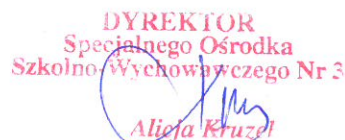 DYREKTOR
Specjalnego Ośrodka
Szkolno-Wychowawczego Nr 3
Alicja Kruzel